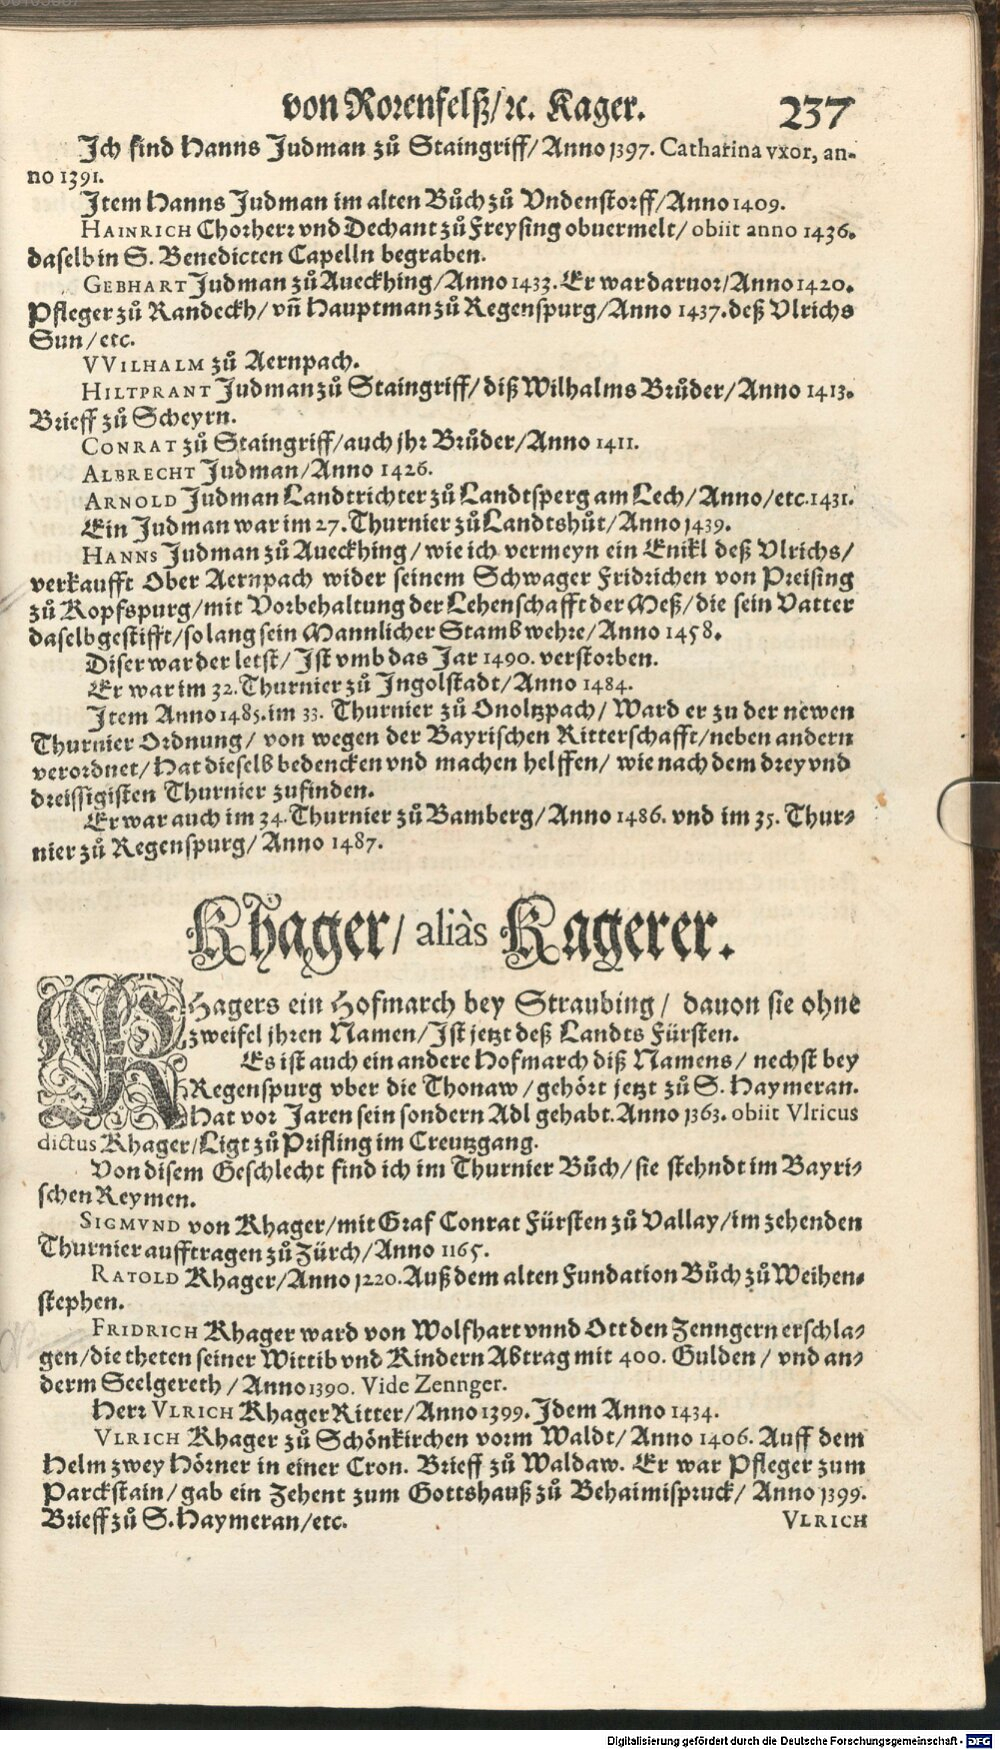 von Rorenfelß/ꝛc. Kager. 237
Ich find Hanns Judman zů Staingriff/Anno 1397. Catharina vxor, an-
no 1391.
Item Hanns Judman im alten Bůch zů Vndenstorff/Anno 1409.
HAINRICH Chorherr vnd Dechant zů Freysing obuermelt/ obiit anno 1436.
daselb in S. Benedicten Capelln begraben.
GEBHART Judman zů Aueckhing/Anno 1433. Er war daruor/Anno 1420.
Pfleger zů Randeckh/ vñ Hauptman zů Regenspurg/Anno 1437. deß Vlrichs
Sun/etc.
VVILHALM zů Aernpach.
HILTPRANT Judman zů Staingriff/ diß Wilhalms Brůder/Anno 1413.
Brieff zů Scheyrn.
CONRAT zů Staingriff/auch jhr Brůder/Anno 1411.
ALBRECHT Judman/Anno 1426.
ARNOLD Judman Landtrichter zů Landtsperg am Lech/Anno/etc. 1431.
Ein Judman war im 27. Thurnier zů Landtshůt/Anno 1439.
HANNS Judman zů Aueckhing/wie ich vermeyn ein Enikl deß Vlrichs/
verkaufft Ober Aernpach wider seinem Schwager Fridrichen von Preising
zů Kopfspurg/mit Vorbehaltung der Lehenschafft der Meß/die sein Vatter
daselb gestifft/so lang sein Mannlicher Stamb wehre/Anno 1458.
Diser war der letst/ Ist vmb das Jar 1490. verstorben.
Er war im 32. Thurnier zů Ingolstadt/Anno 1484.
Item Anno 1485. im 33. Thurnier zů Onoltzpach/ Ward er zu der newen
Thurnier Ordnung/ von wegen der Bayrischen Ritterschafft/neben andern
verordnet/Hat dieselb bedencken vnd machen helffen/ wie nach dem drey vnd
dreissigisten Thurnier zufinden.
Er war auch im 34. Thurnier zů Bamberg/Anno 1486. vnd im 35. Thur-
nier zů Regenspurg/ Anno 1487.
Khager/ aliàs Kagerer.
KHagers ein Hofmarch bey Straubing/ dauon sie ohne
zweifel jhren Namen/Ist jetzt deß Landts Fürsten.
Es ist auch ein andere Hofmarch diß Namens/ nechst bey
Regenspurg vber die Thonaw/gehört jetzt zů S. Haymeran.
Hat vor Jaren sein sondern Adl gehabt. Anno 1363. obiit Vlricus
dictus Khager/Ligt zů Prifling im Creutzgang.
Von disem Geschlecht find ich im Thurnier Bůch/sie stehndt im Bayri-
schen Reymen.
SIGMVND von Khager/mit Graf Conrat Fürsten zů Vallay/im zehenden
Thurnier aufftragen zů Zürch/Anno 1165.
RATOLD Khager/Anno 1220. Auß dem alten Fundation Bůch zů Weihen-
stephen.
FRIDRICH Khager ward von Wolfhart vnnd Ott den Zenngern erschla-
gen/die theten seiner Wittib vnd Kindern Abtrag mit 400. Gulden/ vnd an-
derm Seelgereth/Anno 1390. Vide Zennger.
Herr VLRICH Khager Ritter/Anno 1399. Idem Anno 1434.
VLRICH Khager zů Schönkirchen vorm Waldt/Anno 1406. Auff dem
Helm zwey Hörner in einer Cron. Brieff zů Waldaw. Er war Pfleger zum
Parckstain/gab ein Zehent zum Gottshauß zů Behaimispruck/ Anno 1399.
Brieff zů S. Haymeran/etc. VLRICH
Digitalisierung gefördert durch die Deutsche Forschungsgemeinschaft - DFG